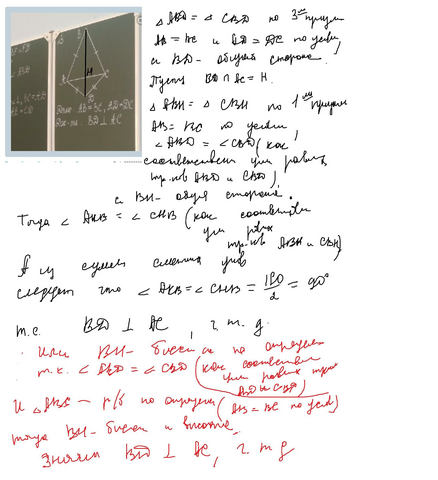 B
A
H
C
D
Дано: AB = BC, AD = DC
BD ⊥ AC
△ ABD = △ CBD по 3
AB = BC и AD = DC по усл,
и BD - общая сторона.
Пусть BD ∩ AC = H.
△ ABH = △ CBH по 1
AB = BC по усл,
∠ ABD = ∠ CBD (как
соответствен углы равных
тр-ков ABD и CBD),
и BH - общая сторона.
Тогда ∠ AHB = ∠ CHB (как соответств
углы равн
тр-ков ABH и CBH)
А из суммы смежных углов
следует что ∠ AHB = ∠ CHB = 180/2 = 90°
т.е. BD ⊥ AC, ч.т.д.
Или BH - бисс по определ
т.к. ∠ ABD = ∠ CBD (как соответствен
углы равных
ABD и CBD)
И △ ABC - р/б по определ (AB = BC по усл)
тогда BH - бисс и высота
Значит BD ⊥ AC, ч.т.д